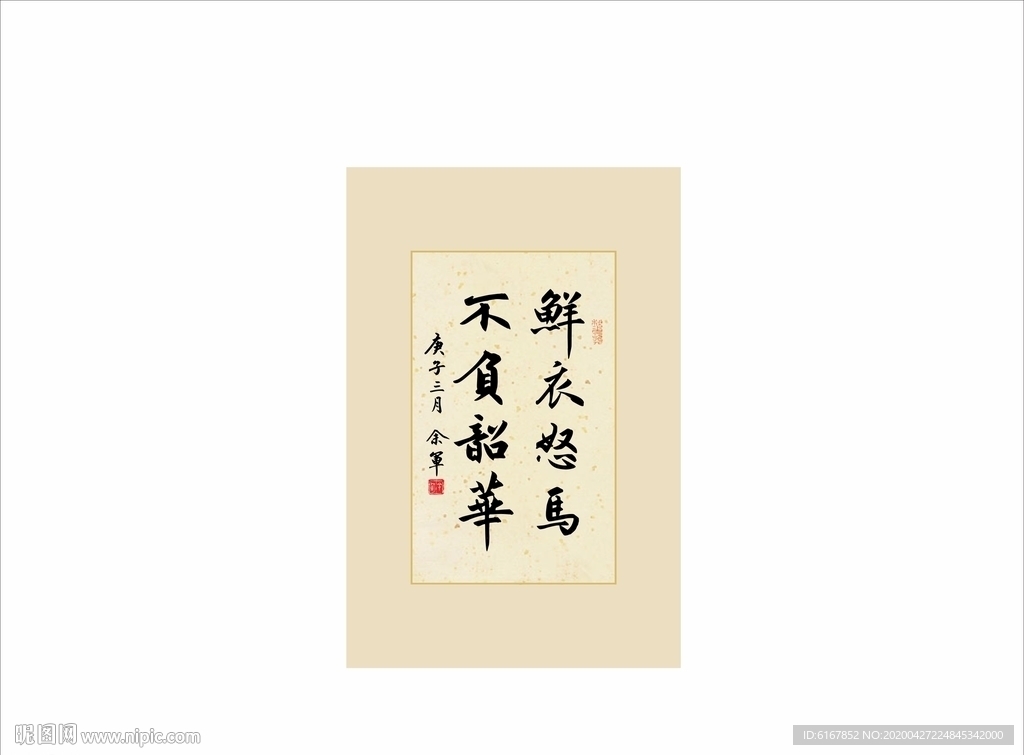 鮮衣怒馬
不負韶華
庚子三月 余軍
昵图网 www.nipic.com
ID:6167852 NO:20200427224845342000